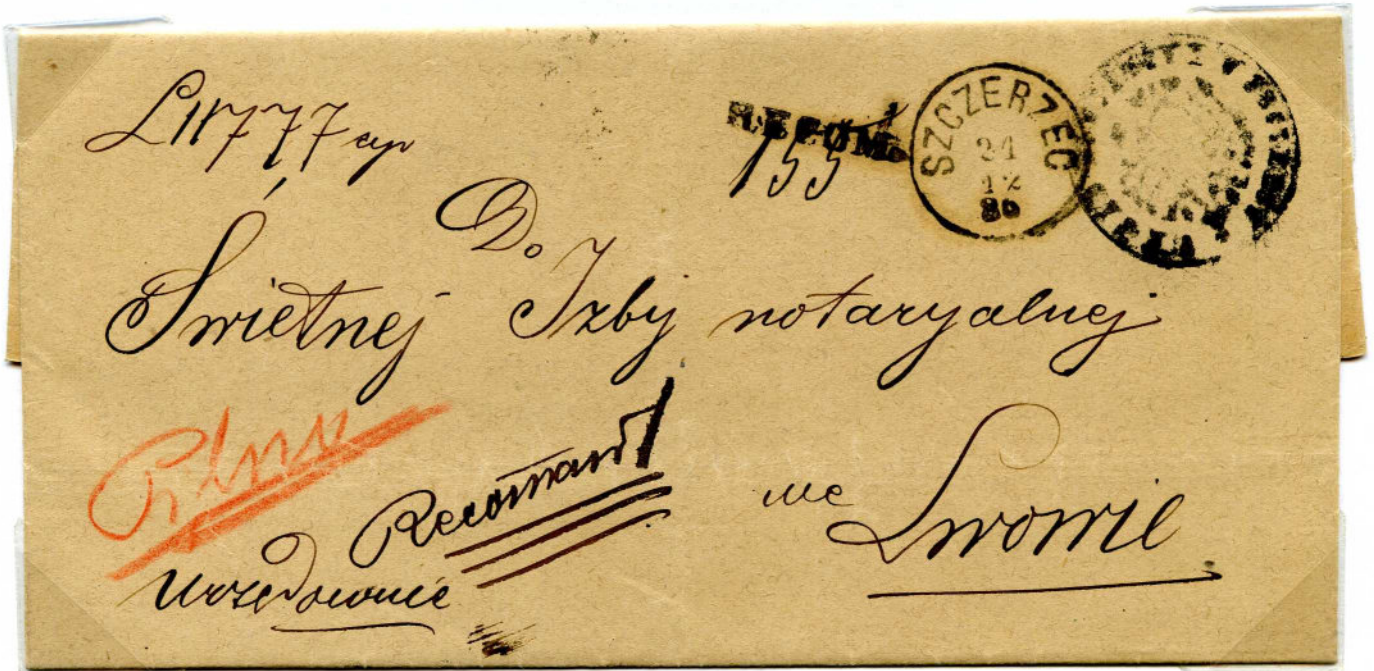 RECOM.
155
SZCZERZEC
31
12
86
Do
Świetnej Izby notaryalnej
Pilno
Recomand
we Lwowie
Urzędownie